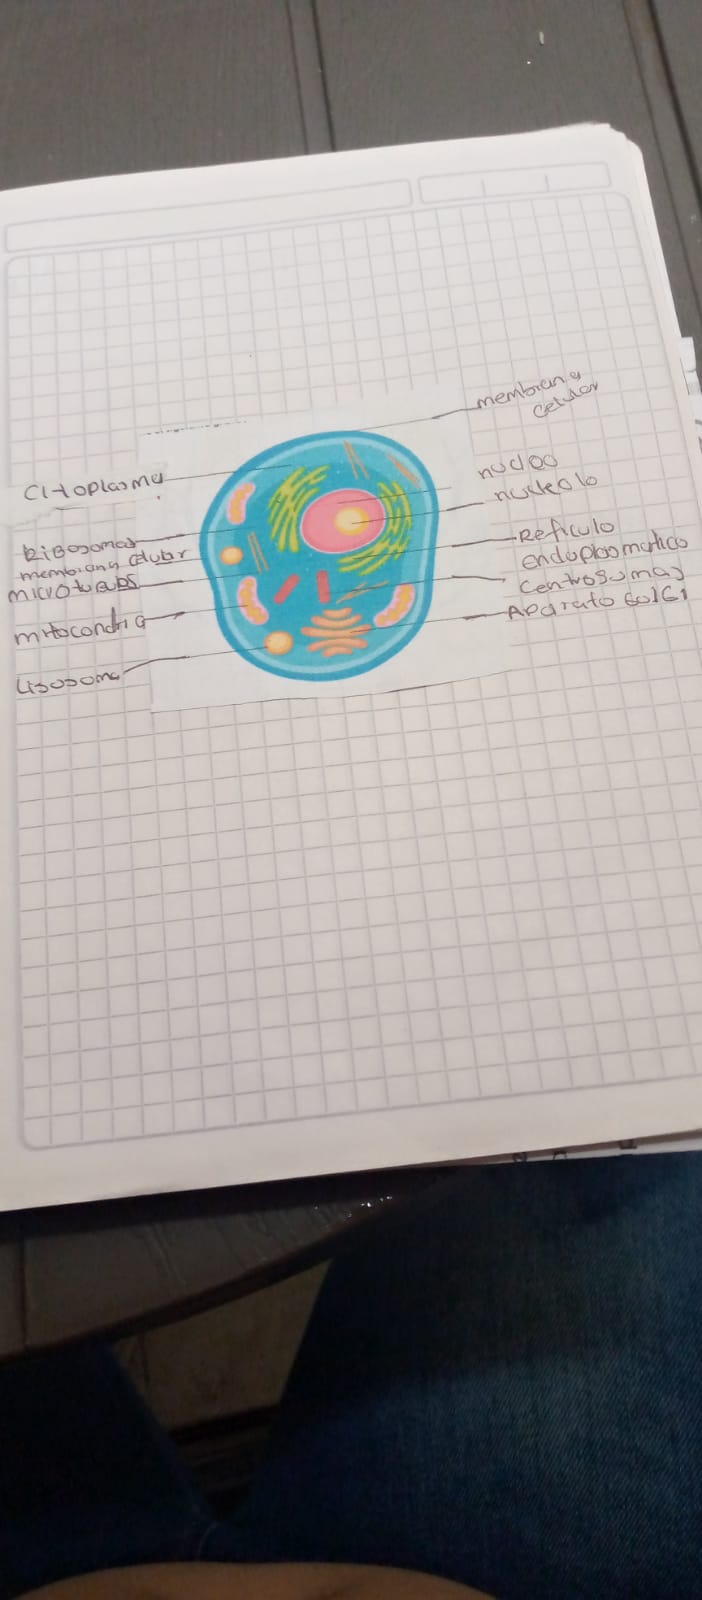 membrana
celular
Citoplasma
nucleo
nucleolo
Ribosomas
membrana celular
microtubos
Reticulo
endoplasmatico
centrosomas
Aparato Golgi
mitocondria
Lisosoma